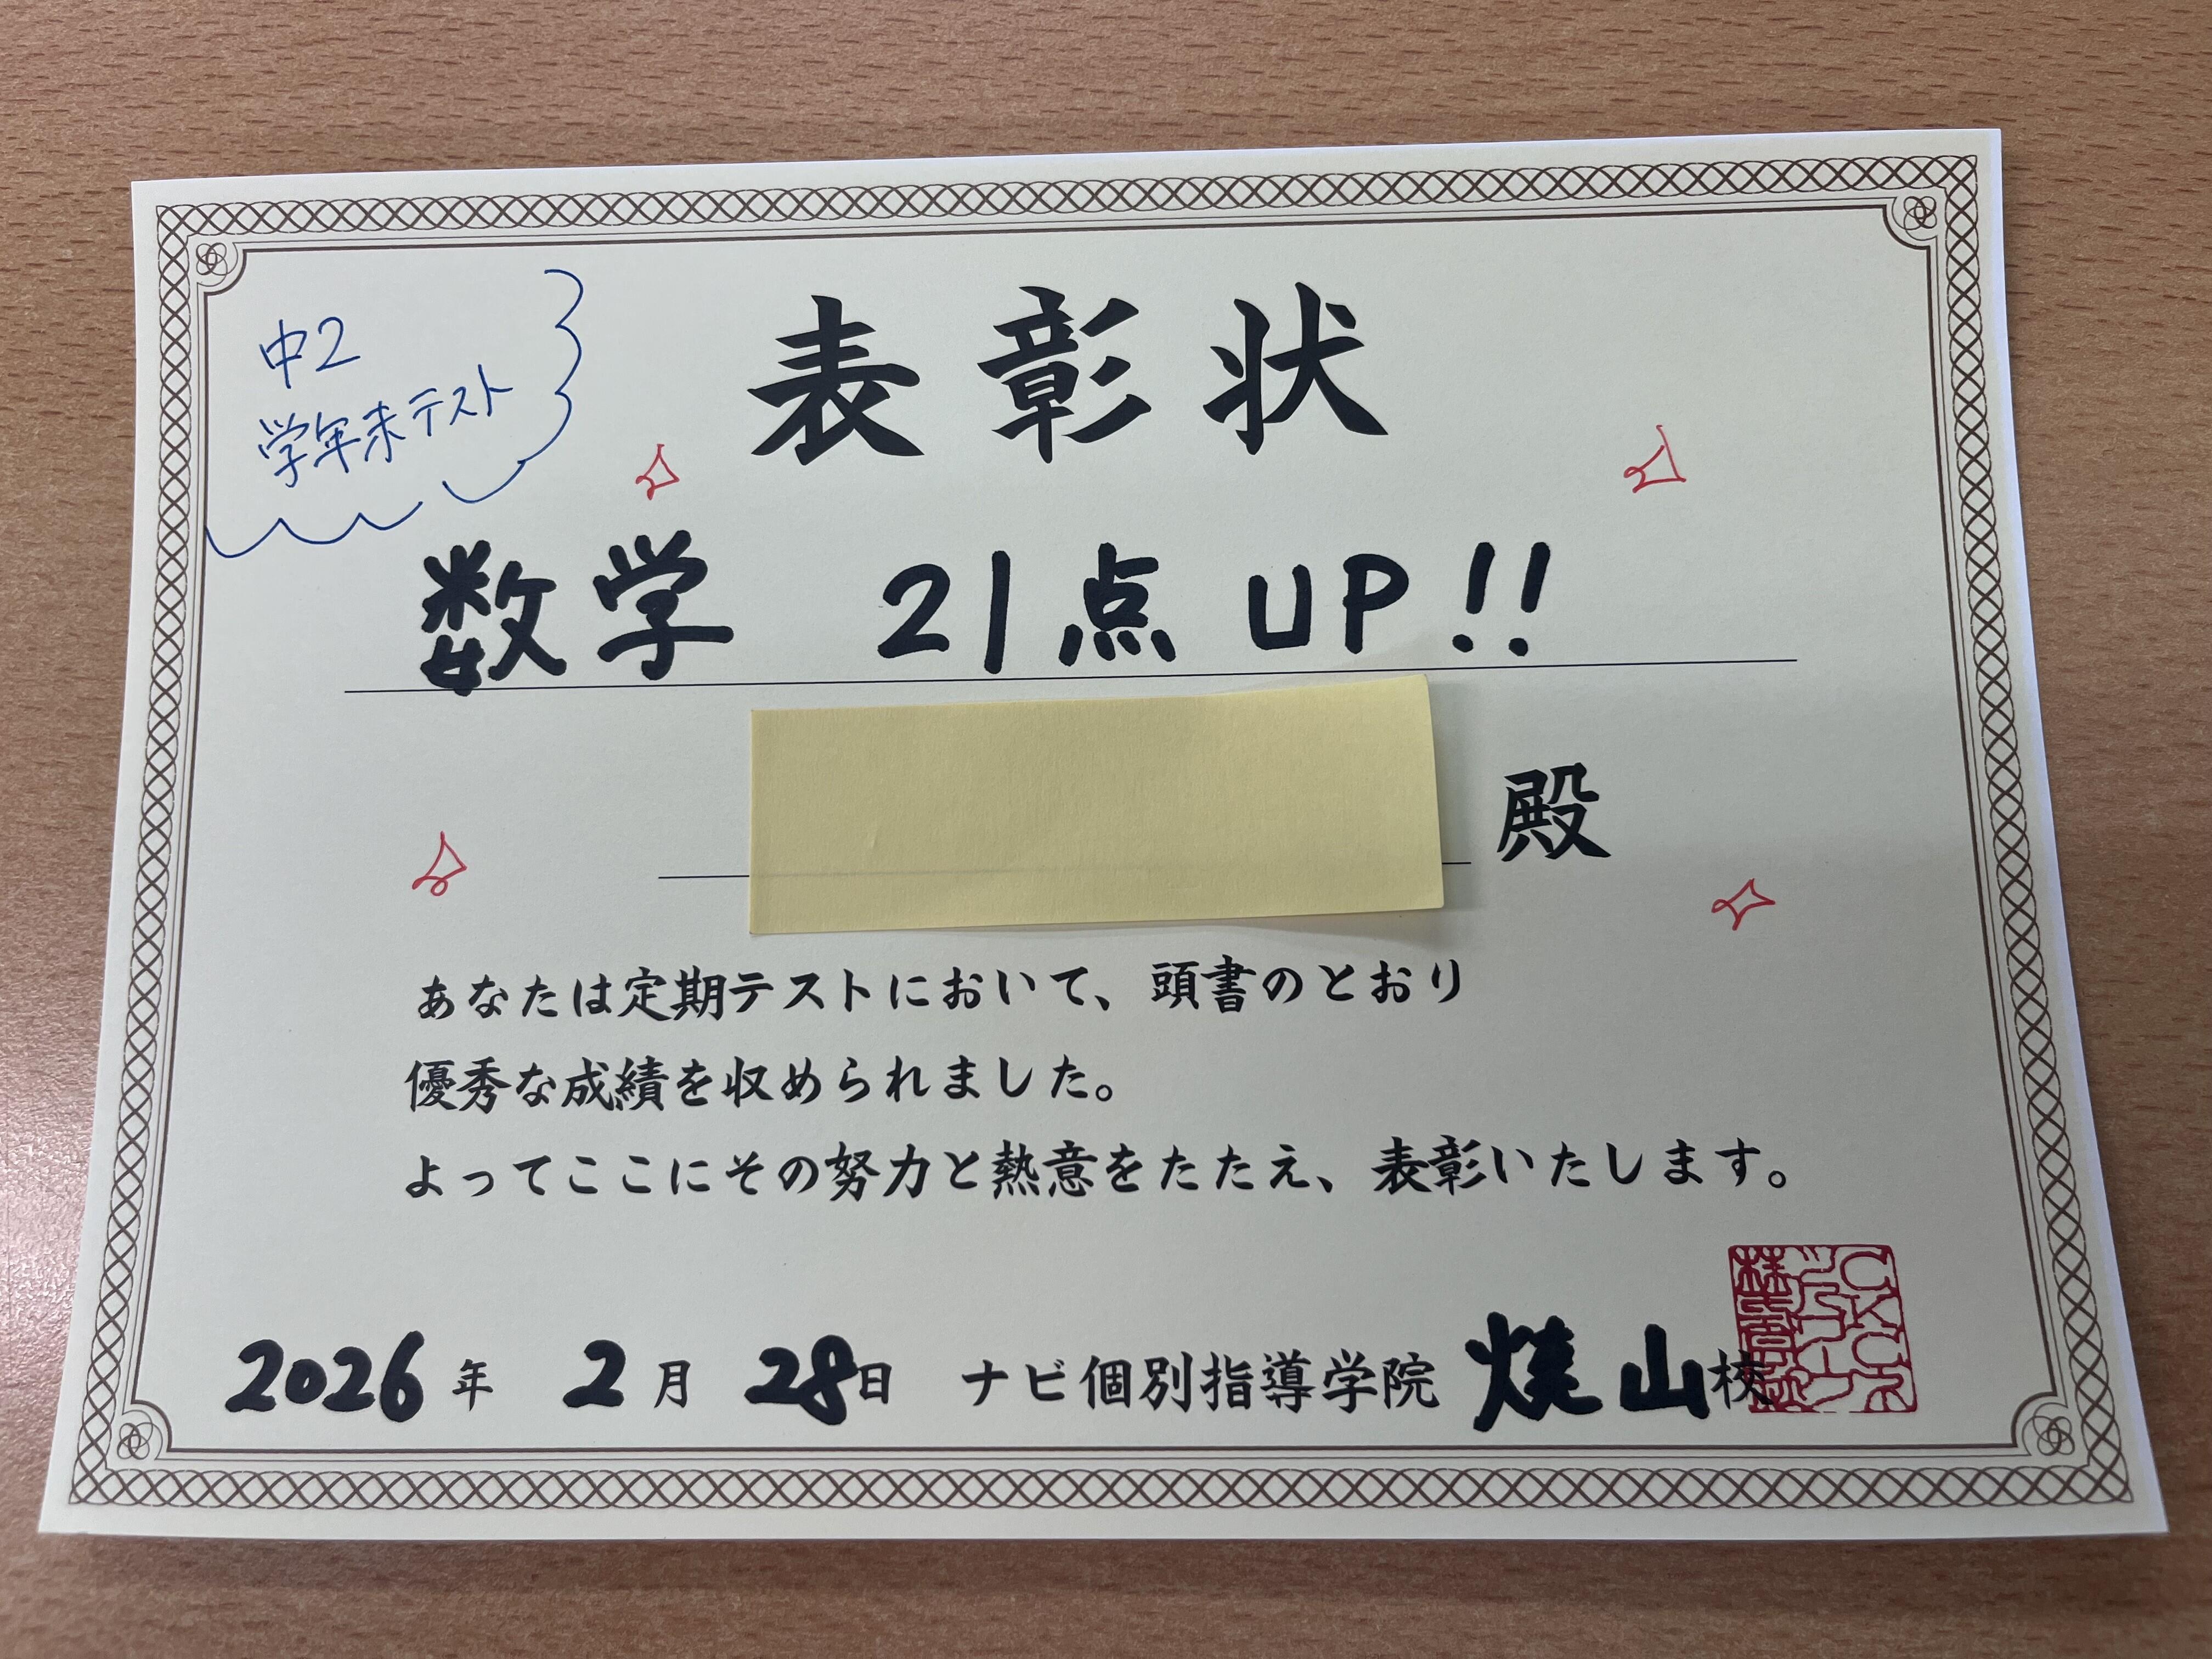 中2
学年末テスト
表彰状
数学 21点 UP!!
殿
あなたは定期テストにおいて、頭書のとおり
優秀な成績を収められました。
よってここにその努力と熱意をたたえ、表彰いたします。
2026年 2月 28日 ナビ個別指導学院 焼山校